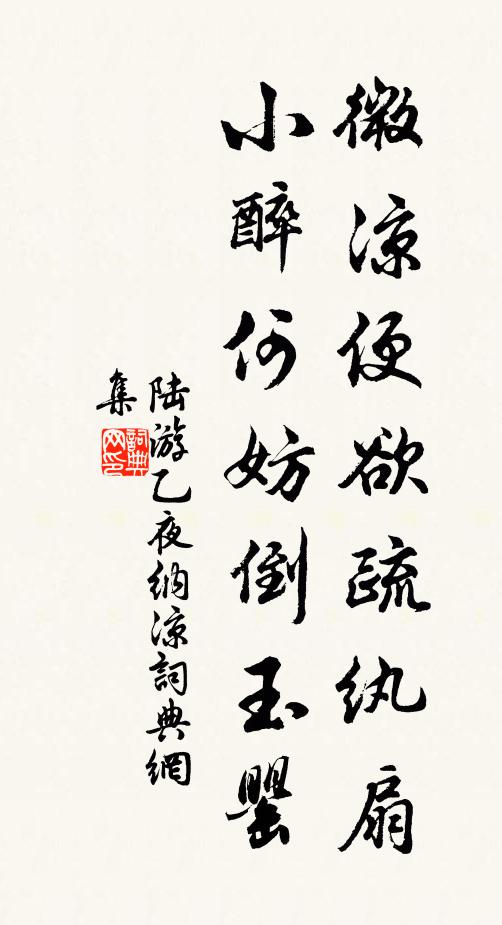 微凉便欲疏纨扇
小醉何妨倒玉罂
陆游乙夜纳凉詞典網
集
詞典
网印